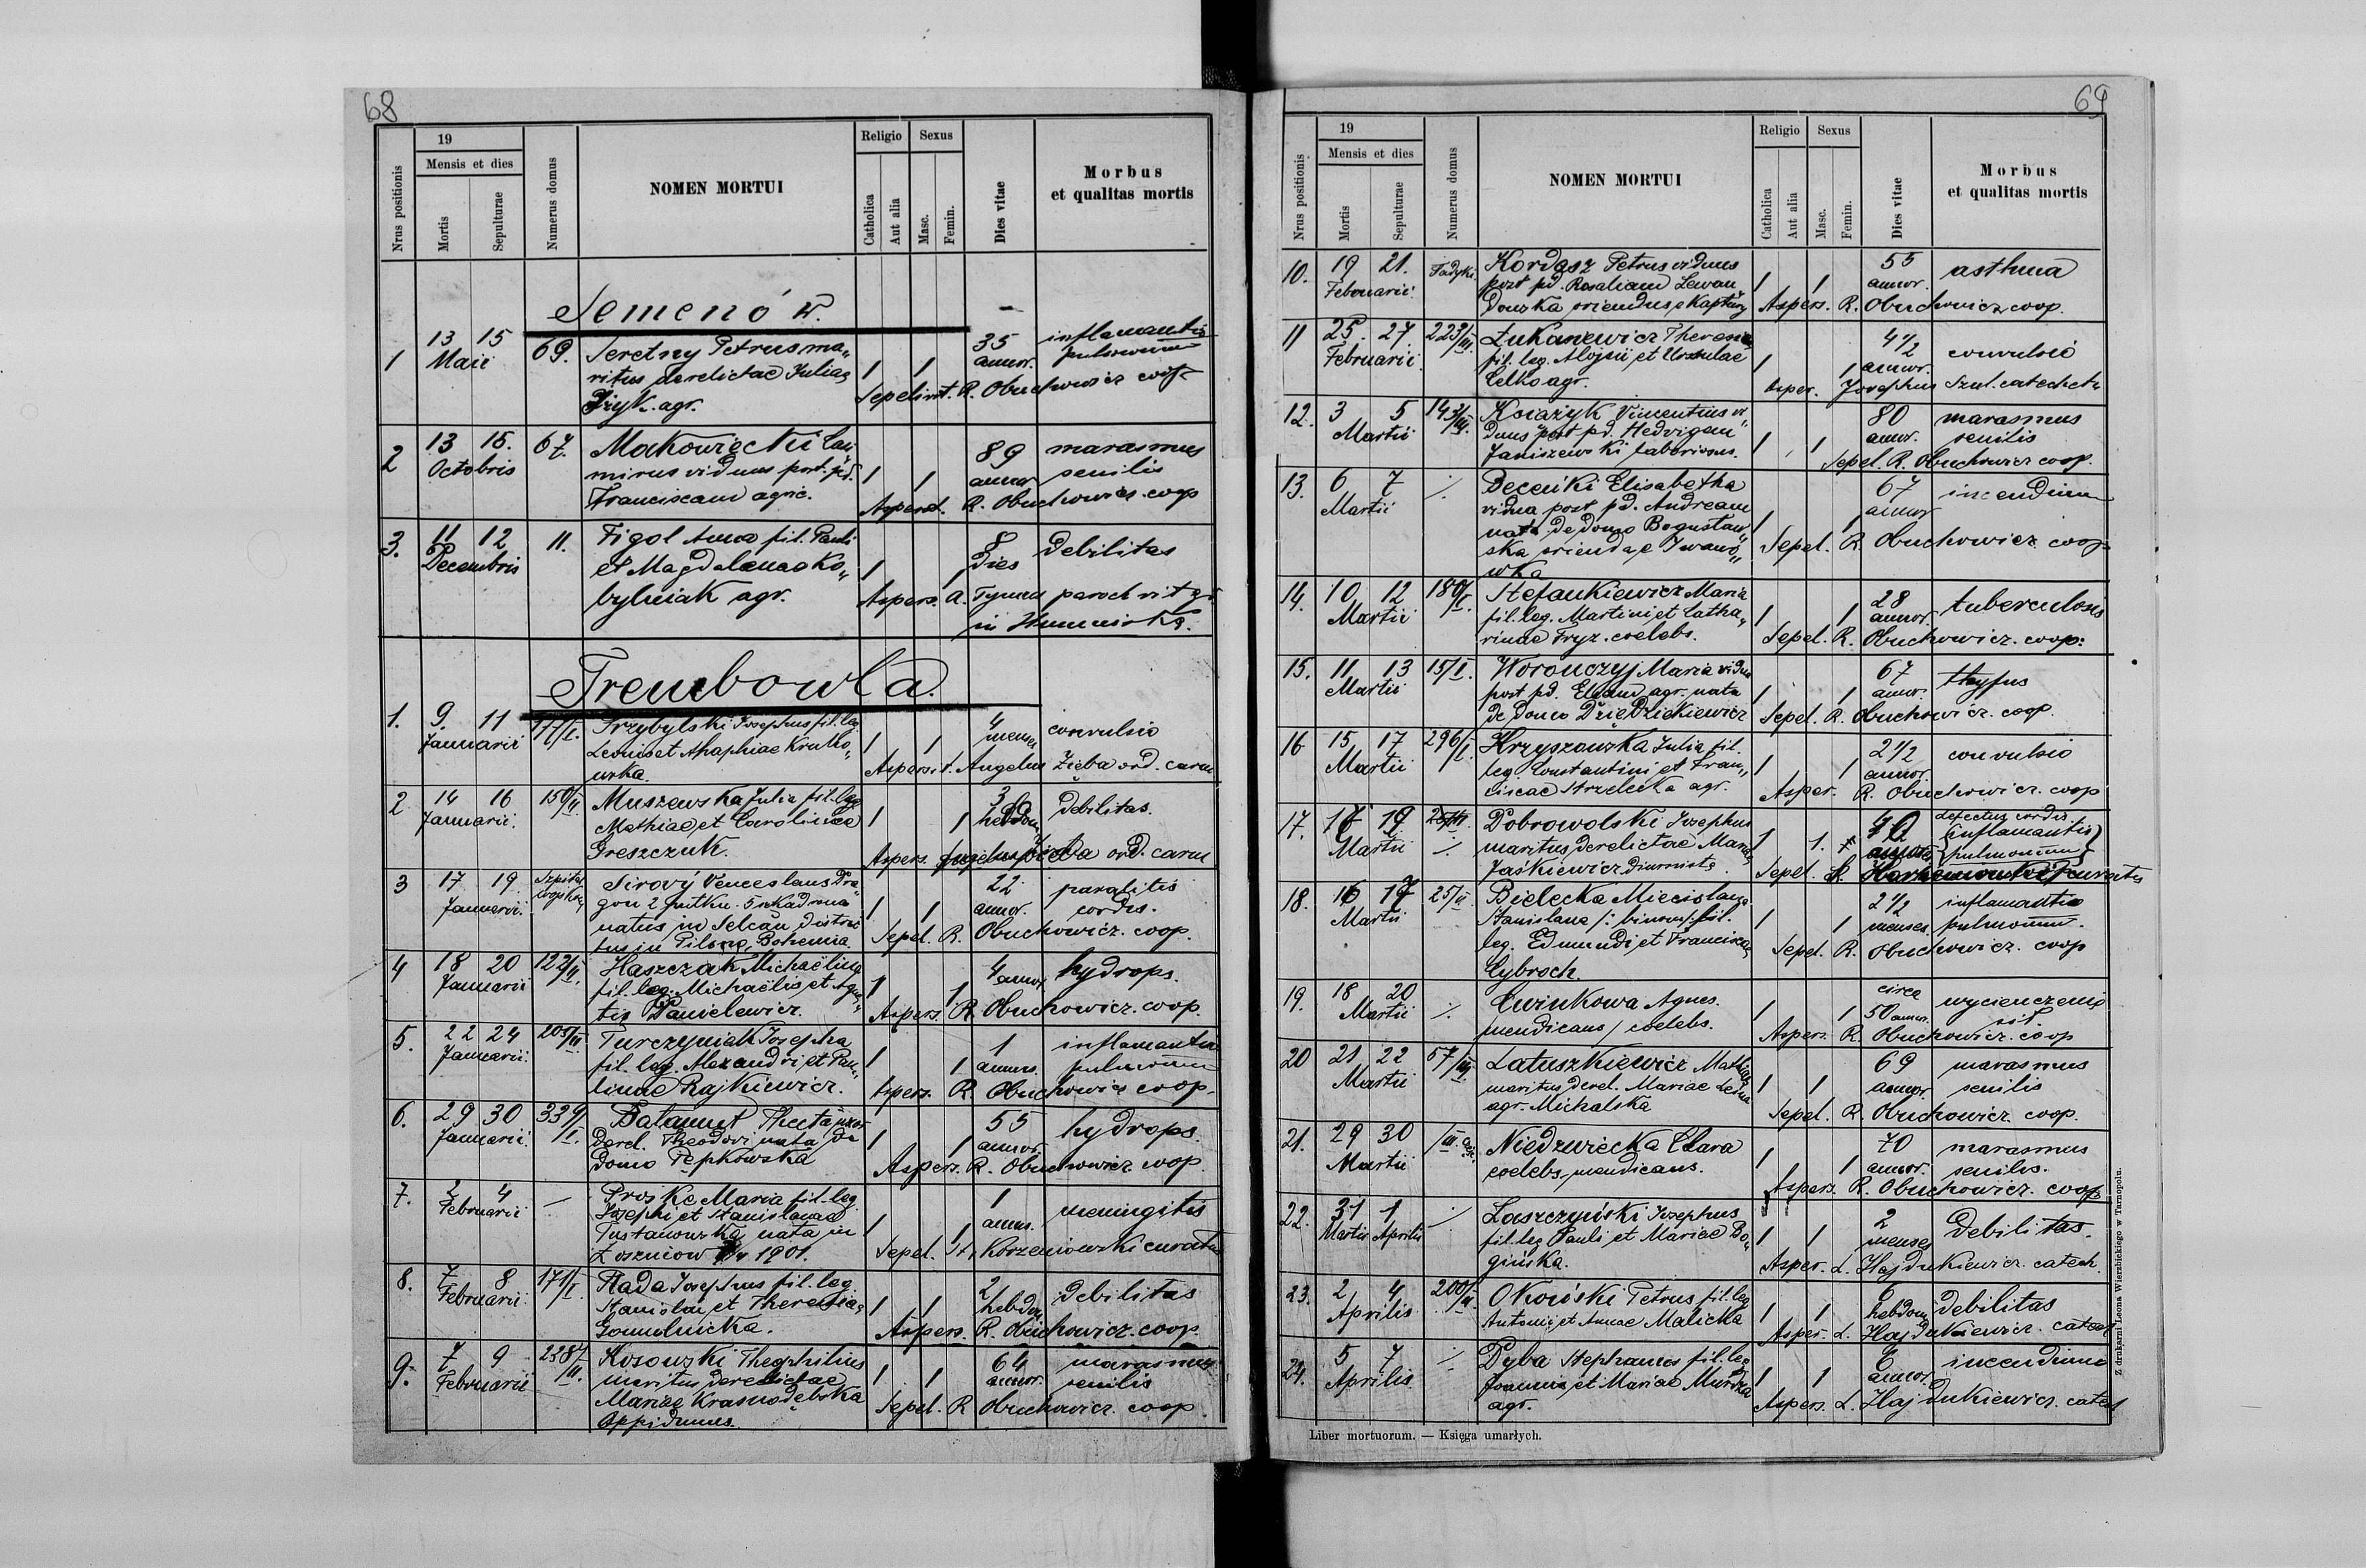 68
19
Religio
Sexus
Mensis et dies
Nrus positionis
Mortis
Sepulturae
Numerus domus
NOMEN MORTUI
Catholica
Aut alia
Masc.
Femin.
Dies vitae
Morbus
et qualitas mortis
Semenów.
1
13 15
Maii
69.
Seretny Petrus ma„
ritus derelictae Juliae
agr.
1 1
35
annor.
inflamantio
pulmonum
Sepelivit. R. Obuchowicz coop.
2
13 15.
Octobris
67.
Makowiecki Casi
mirus viduus post. pd.
Franciscam agric.
1 1
89
annor
marasmus
senilis
Aspersit. R. Obuchowicz. coop
3.
11 12
Decembris
11.
Figol Anna fil. Pauli
et Magdalenae Ko„
bylniak agr.
1 1
8
Dies
Debilitas
Aspers. A. paroch rit gr.
in
Trembowla.
1.
9. 11
Januarii
117/I.
Przybylski Josephus fil. leg
Leonis et Ahaphiae Krutko„
wska.
1 1
4
menses
convulsio
Aspersit. Angelus Zięba ord. carm
2
14 16
Januarii.
150/II
Muszewska Julia fil. leg.
Mathiae et Carolinae
Greszczuk.
1 1
3
hebdom.
Debilitas.
Aspers. Angelus Zięba ord. carm
3
17 19
Januarii.
Szpital
wojsk.
Sirový Venceslaus Dra„
gon 2 putku. 5 szkadrona
natus in Selcan distric
tus in Pilzno, Bohemia
1 1
22
annor.
paralitis
cordis.
Sepel. R. Obuchowicz. coop.
4
18 20
Januarii
122/II.
Haszczak Michaëlina
fil. leg. Michaëlis et Agne„
tis Pawelewicz.
1 1
4 annor.
hydrops.
Aspers. R. Obuchowicz. coop.
5.
22 24
Januarii.
205/III
Turczyniak Josepha
fil. leg. Alexandri et Pau„
linae Rajkiewicz.
1 1
1
annus.
inflamantio
pulmonum
Aspers. R. Obuchowicz coop.
6.
29 30
Januarii.
339/I.
Batamut Thecla uxor
derel. Theodori nata de
domo Pępkowska
1 1
55
annor.
hydrops.
Aspers. R. Obuchowicz coop
7.
2 4
Februarii
—
Projke Maria fil. leg.
Josephi et Stanislawae
Tustanowska nata in
Łoszniow 1901.
1 1
1
annus.
meningitis
Sepel. St. Korzeniowski curatus
8.
7 8
Februarii.
171/I.
Rada Josephus fil. leg.
Stanislai et Theresiae
Gomulnicka.
1 1
2
hebdom
debilitas
Aspers. R. Obuchowicz. coop.
9.
7 9
Februarii
2387/III.
Kosowski Theophilius
maritus derelictae
Mariae Krasnodębska
Oppidanus.
1 1
64
annor.
marasmus
senilis
Sepel. R Obuchowicz. coop.
69
19
Religio
Sexus
Mensis et dies
Nrus positionis
Mortis
Sepulturae
Numerus domus
NOMEN MORTUI
Catholica
Aut alia
Masc.
Femin.
Dies vitae
Morbus
et qualitas mortis
10.
19 21.
Februarii.
Sadyki
Kordasz Petrus viduus
post pd. Rosaliam Lewan
dowska oriendus e Kaptury
1 1
55
annor.
asthma
Aspers. R. Obuchowicz coop.
11
25. 27.
Februarii.
223/III.
Łukaniewicz Theresia
fil. leg. Alojsii et Ursulae
Celko agr.
1 1
4 1/2
annor.
convulsio
Asper. Josephus Szul. catecheta
12.
3 5
Martii
143/III.
Książyk Vincentius vi„
duus post pd. Hedvigem
Janiszewski laboriosus.
1 1
80
annor.
marasmus
senilis
Sepel. R. Obuchowicz coop.
13.
6 7
Martii
⁒
Decenki Elisabetha
vidua post pd. Andream
nata de domo Bogusław„
ska orienda e Iwanó„
wka
1 1
67
annor
incendium
Sepel. R. Obuchowicz coop
14.
10 12
Martii
180/I.
Stefankiewicz Maria
fil. leg. Martini et Catha„
rinae Fryz. coelebs.
1 1
28
annor.
tuberculosis
Sepel. R. Obuchowicz. coop:
15.
11 13
Martii
15/I.
Woronczyj Maria vidua
post pd. Eliam agr. nata
de domo Dziedziekiewicz
1 1
67
annor.
thyfus
Sepel. R. Obuchowicz. coop.
16
15 17
Martii
296/I.
Krzyszowska Julia fil.
leg. Constantini et Fran„
ciscae Strzelecka agr.
1 1
2 1/2
annor.
convulsio
Asper. R. Obuchowicz. coop
17.
17 19
Martii
⁒
Dobrowolski Josephus
maritus derelictae Mariae
Jaśkiewicz diurnista.
1 1.
defectus cordis
inflamantio
pulmonum
Sepel. St. Korzeniowski curatus
18.
16 17
Martii
25/II
Bielecka Miecislava
Stanislava /: binom:/ fil.
leg. Edmundi et Franciscae
Cybroch.
1 1
2 1/2
menses
inflamantio
pulmonum.
Sepel. R. Obuchowicz. coop
19.
18 20
Martii
⁒
Cwinkowa Agnes.
mendicans / coelebs.
1 1
circa
50 annor.
wycienczenie
sił.
Aspers. R. Obuchowicz. coop
20
21 22
Martii
57/III.
Latuszkiewicz Mathias
maritus derel. Mariae
agr. Michalska
1 1
69
annor.
marasmus
senilis
Sepel. R. Obuchowicz. coop.
21.
29 30
Martii
/III.
Niedzwiecka Clara
coelebs, mendicans.
1 1
70
annor.
marasmus
senilis.
Aspers. R. Obuchowicz. coop
22.
31 1
Martii Aprilis
⁒
Laszczyński Josephus
fil. leg Pauli et Mariae Bo„
gińska.
1 1
2
menses
Debilitas.
Asper. L. Hajdukiewicz. catech.
23.
2 4
Aprilis
200/II.
Okoński Petrus fil. leg
Antonii et Annae Malicka
1 1
6
hebdom
Debilitas
Asper. L. Hajdukiewicz. catech
24.
5 7
Aprilis
⁒
Dyba Stephanus fil. leg
Joannis et Mariae Murdza
agr.
1 1
6
annor.
incendium
Aspers. L. Hajdukiewicz. catech
Liber mortuorum. — Księga umarłych.
Z drukarni Leona Wierzbickiego w Tarnopolu.